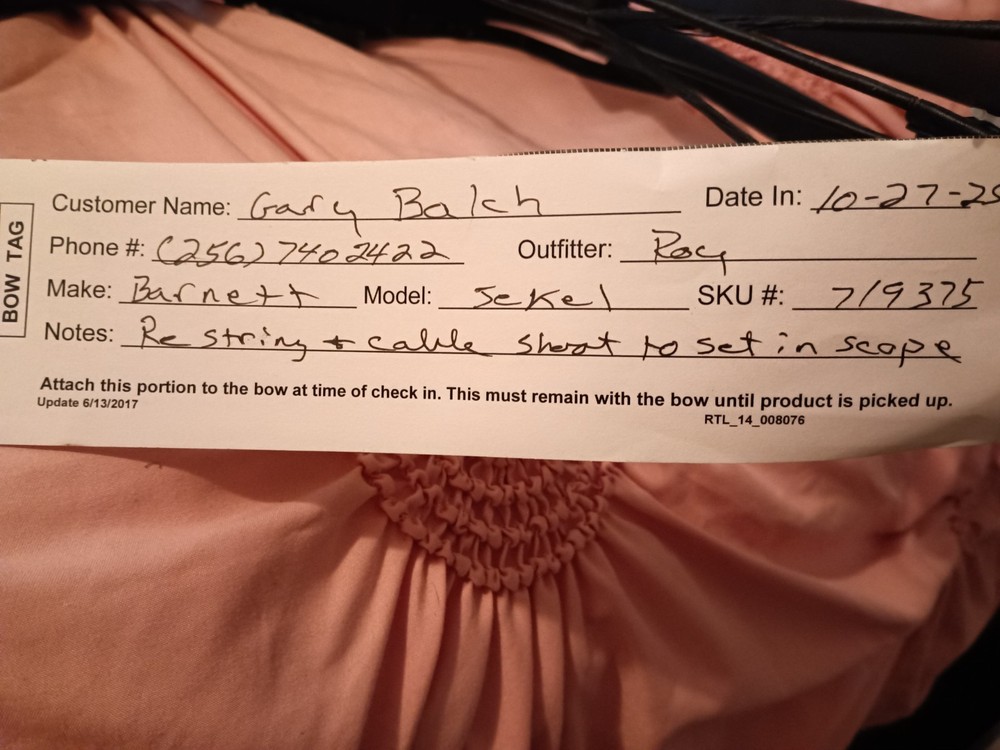 BOW TAG
Customer Name: Gary Balch Date In: 10-27-25
Phone #: (256) 7402422 Outfitter: Rocy
Make: Barnett Model: Jekel SKU #: 719375
Notes: Re string + cable shoot to set in scope
Attach this portion to the bow at time of check in. This must remain with the bow until product is picked up.
Update 6/13/2017 RTL_14_008076